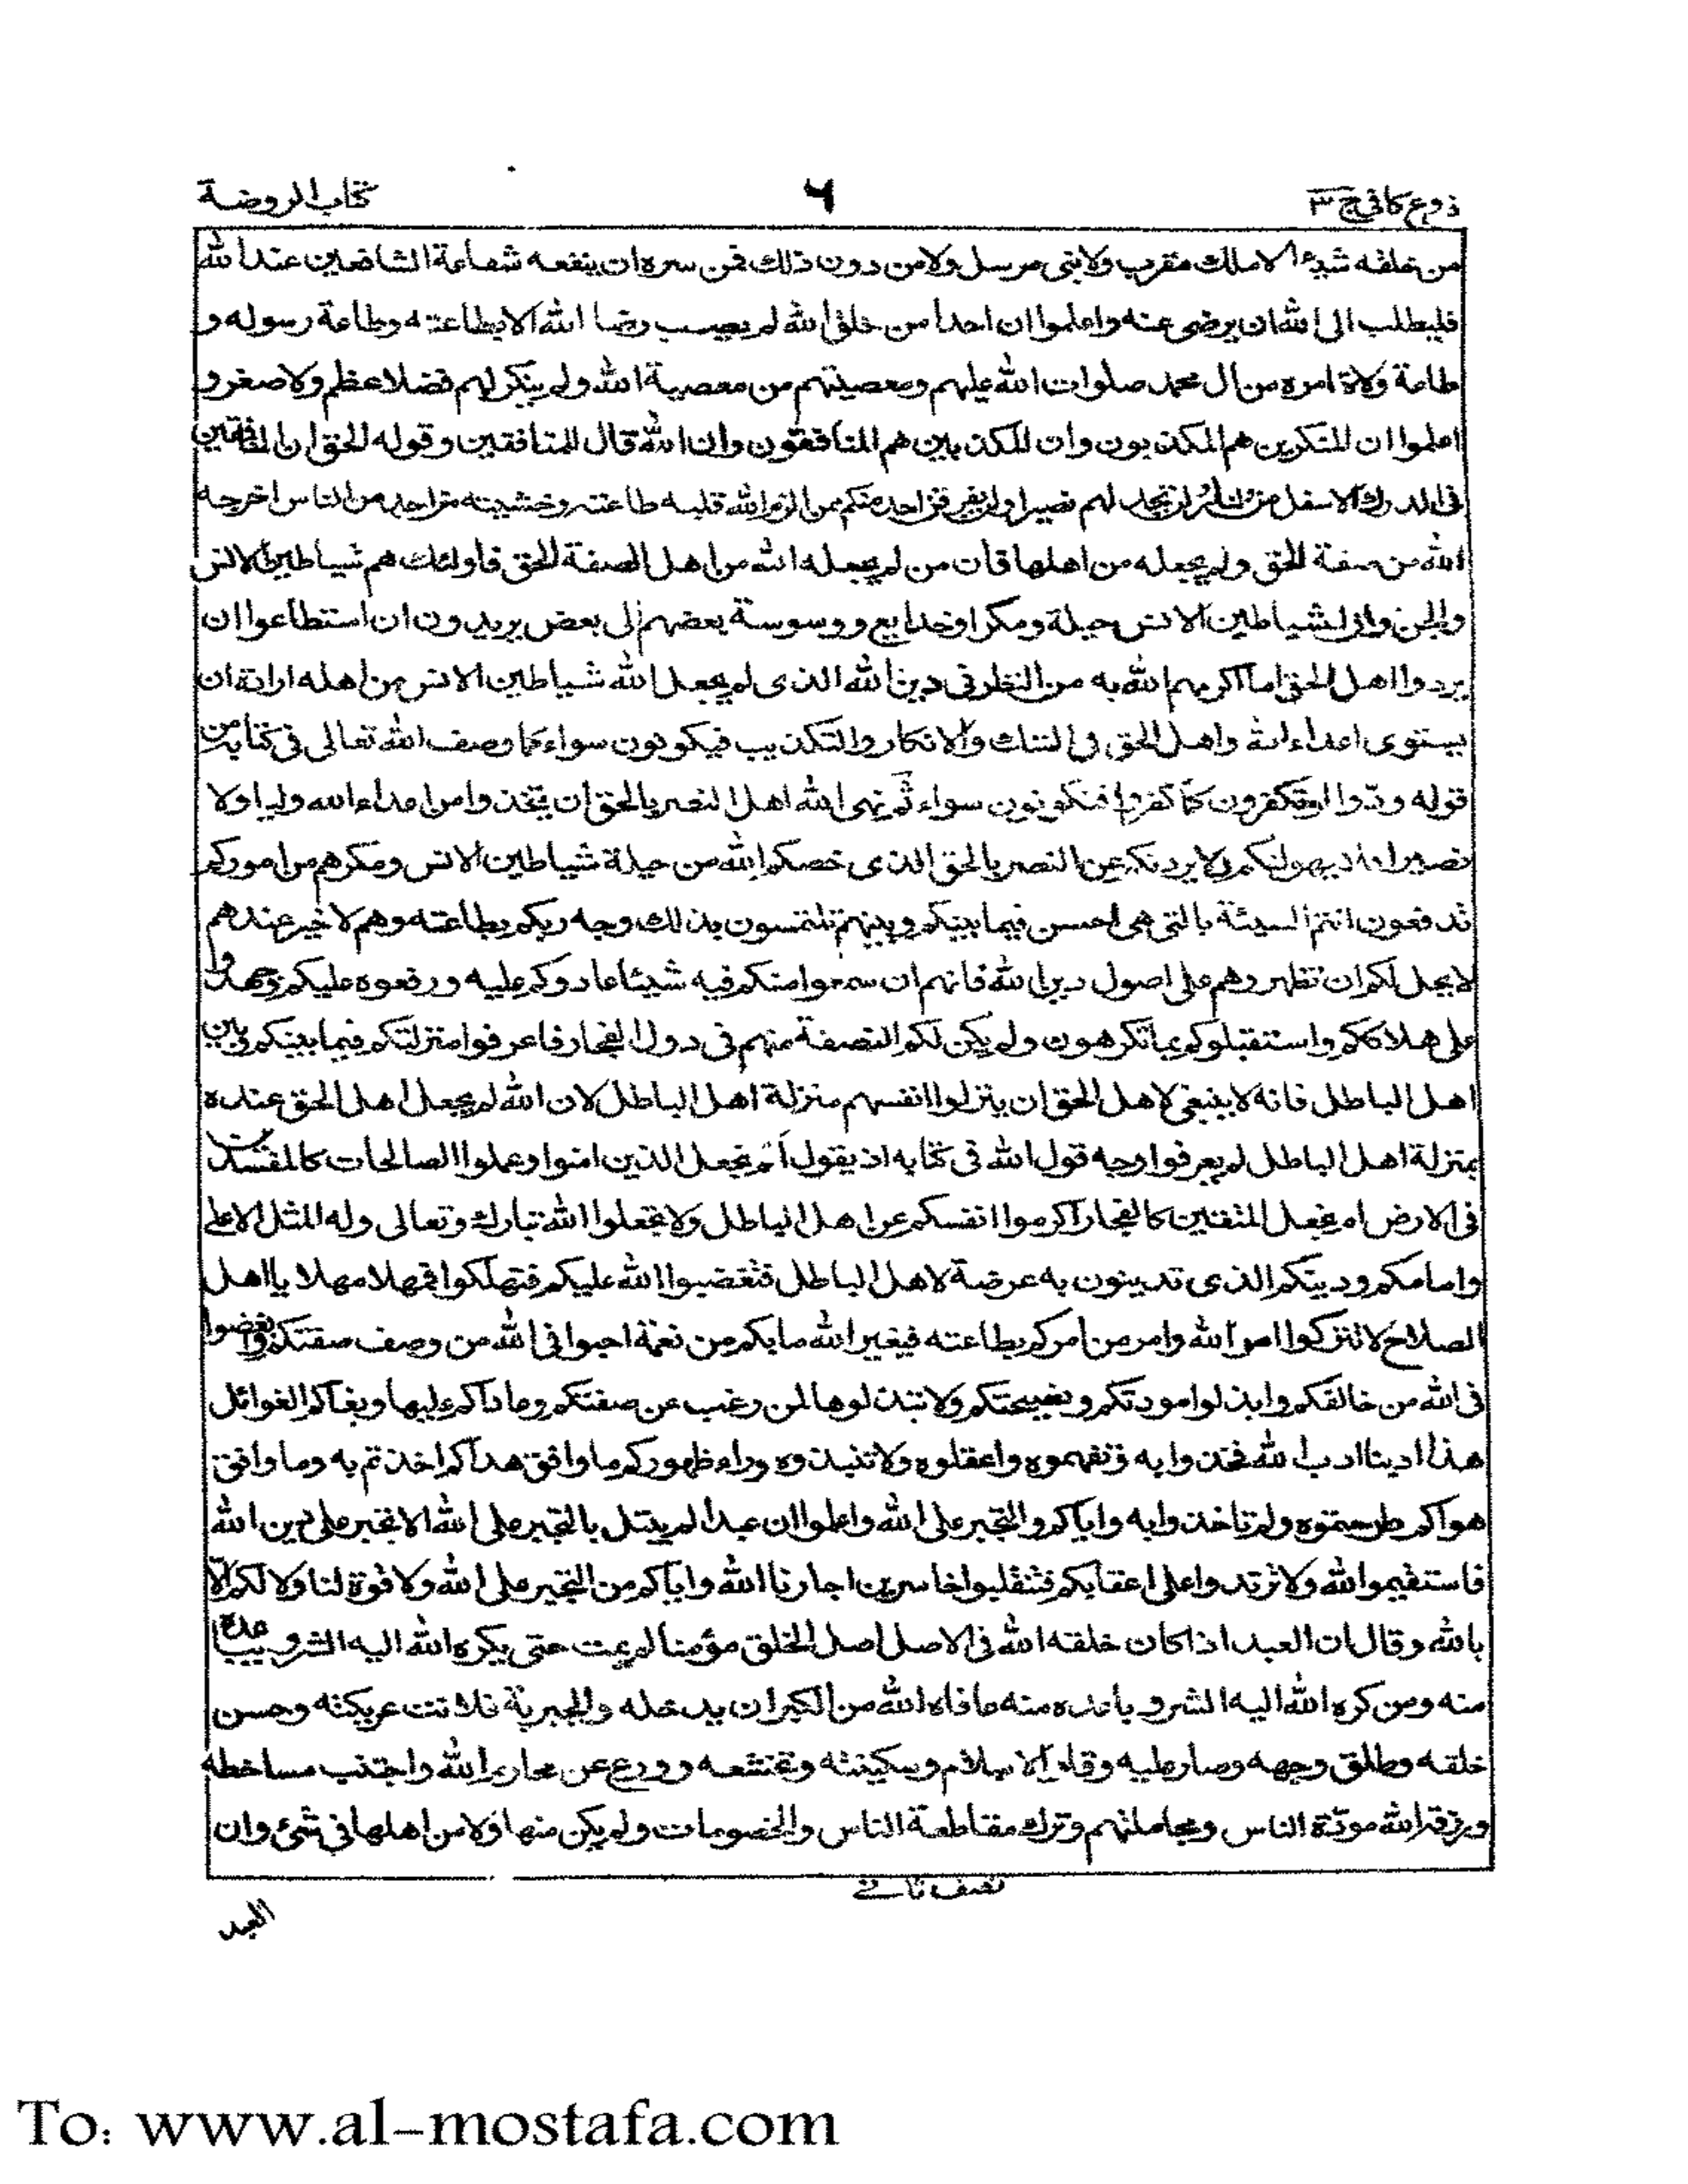 فروع كافي ج ٣
٦
كتاب الروضة
من خلقه شيئا لا ملك مقرب ولا نبى مرسل ولا من دون ذلك فمن سره ان ينفعه شفاعة الشافعين عند الله
فليطلب الى الله ان يرضى عنه واعلموا ان احدا من خلق الله لم يصب رضا الله الا بطاعته وطاعة رسوله و
طاعة ولاة امره من ال محمد صلوات الله عليهم ومعصيتهم من معصية الله ولم ينكر لهم فضلا عظم ولا صغر و
اعلموا ان المنكرين هم المكذبون وان المكذبين هم المنافقون وان الله قال للمنافقين وقوله الحق ان المنافقين
فى الدرك الاسفل من النار ولن تجد لهم نصيرا ولا يفرقن احد منكم من الزم الله قلبه طاعته وخشيته من احد من الناس اخرجه
الله من صفة الحق ولم يجعله من اهلها فان من لم يجعله الله من اهل الصفة الحق فاولئك هم شياطين الانس
والجن وان لشياطين الانس حيلة ومكرا وخدايع ووسوسة بعضهم الى بعض يريدون ان استطاعوا ان
يردوا اهل الحق اما اكرمهم الله به من النظر فى دين الله الذى لم يجعل الله شياطين الانس من اهله ارادة ان
يستوى اعداء الله واهل الحق فى الشك والانكار والتكذيب فيكونون سواء كما وصف الله تعالى فى كتابه من
قوله ودوا لو تكفرون كما كفروا فتكونون سواء ثم نهى الله اهل النصر بالحق ان يتخذوا من اعداء الله وليا ولا
نصيرا فلا يهولنكم ولا يردنكم عن النصر بالحق الذى خصكم الله من حيلة شياطين الانس ومكرهم من اموركم
تدفعون انتم السيئة بالتى هى احسن فيما بينكم وبينهم تلتمسون بذلك وجه ربكم بطاعته وهم لا خير عندهم
لا يحل لكم ان تظهروهم على اصول دين الله فانهم ان سمعوا منكم فيه شيئا عادوكم عليه ورفعوه عليكم وجهدوا
على هلاككم واستقبلوكم بما تكرهون ولم يكن لكم النصفة منهم فى دول الفجار فاعرفوا منزلتكم فيما بينكم وبين
اهل الباطل فانه لا ينبغى لاهل الحق ان ينزلوا انفسهم منزلة اهل الباطل لان الله لم يجعل اهل الحق عنده
بمنزلة اهل الباطل لم يعرفوا وجه قول الله فى كتابه اذ يقول ام نجعل الذين امنوا وعملوا الصالحات كالمفسدين
فى الارض ام نجعل المتقين كالفجار اكرموا انفسكم عن اهل الباطل ولا تجعلوا الله تبارك وتعالى وله المثل الاعلى
وامامكم ودينكم الذى تدينون به عرضة لاهل الباطل فتغضبوا الله عليكم فتهلكوا فمهلا مهلا يا اهل
الصلاح لا تتركوا امر الله وامر من امركم بطاعته فيغير الله ما بكم من نعمة احبوا فى الله من وصف صفتكم وابغضوا
فى الله من خالفكم وابذلوا مودتكم ونصيحتكم ولا تبتذلوها لمن رغب عن صفتكم وعاداكم عليها وبغاكم الغوائل
هذا ادبنا ادب الله فخذوا به وتفهموه واعقلوه ولا تنبذوه وراء ظهوركم ما وافق هداكم اخذتم به وما وافق
هواكم طرحتموه ولم تاخذوا به واياكم والتجبر على الله واعلموا ان عبدا لم يبتل بالتجبر على الله الا تجبر على دين الله
فاستقيموا لله ولا ترتدوا على اعقابكم فتنقلبوا خاسرين اجارنا الله واياكم من التجبر على الله ولا قوة لنا ولا لكم الا
بالله وقال ان العبد اذا كان خلقه الله فى الاصل اصل الخلق مؤمنا لم يمت حتى يكره الله اليه الشر ويباعده
منه ومن كره الله اليه الشر وباعده منه عافاه الله من الكبر ان يدخله والجبرية فلانت عريكته وحسن
خلقه وطلق وجهه وصار عليه وقار الاسلام وسكينته وتخشعه وورع عن محارم الله واجتنب مساخطه
ورزقه الله مودة الناس ومجاملتهم وترك مقاطعة الناس والخصومات ولم يكن منها ولا من اهلها فى شئ وان
نصف ثانى
العبد
To: www.al-mostafa.com